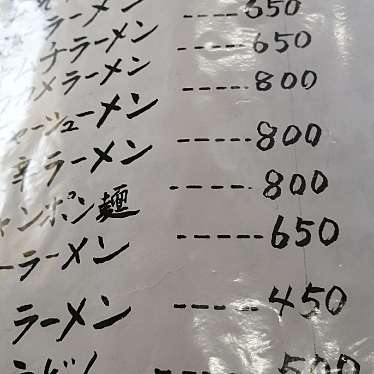 ラーメン ---- 650
チラーメン ---- 650
メラーメン ---- 800
ャーシューメン ----- 800
辛ラーメン ----- 800
ャンポン麺 ----- 650
ーラーメン ----- 450
ラーメン ---- 500
うどん